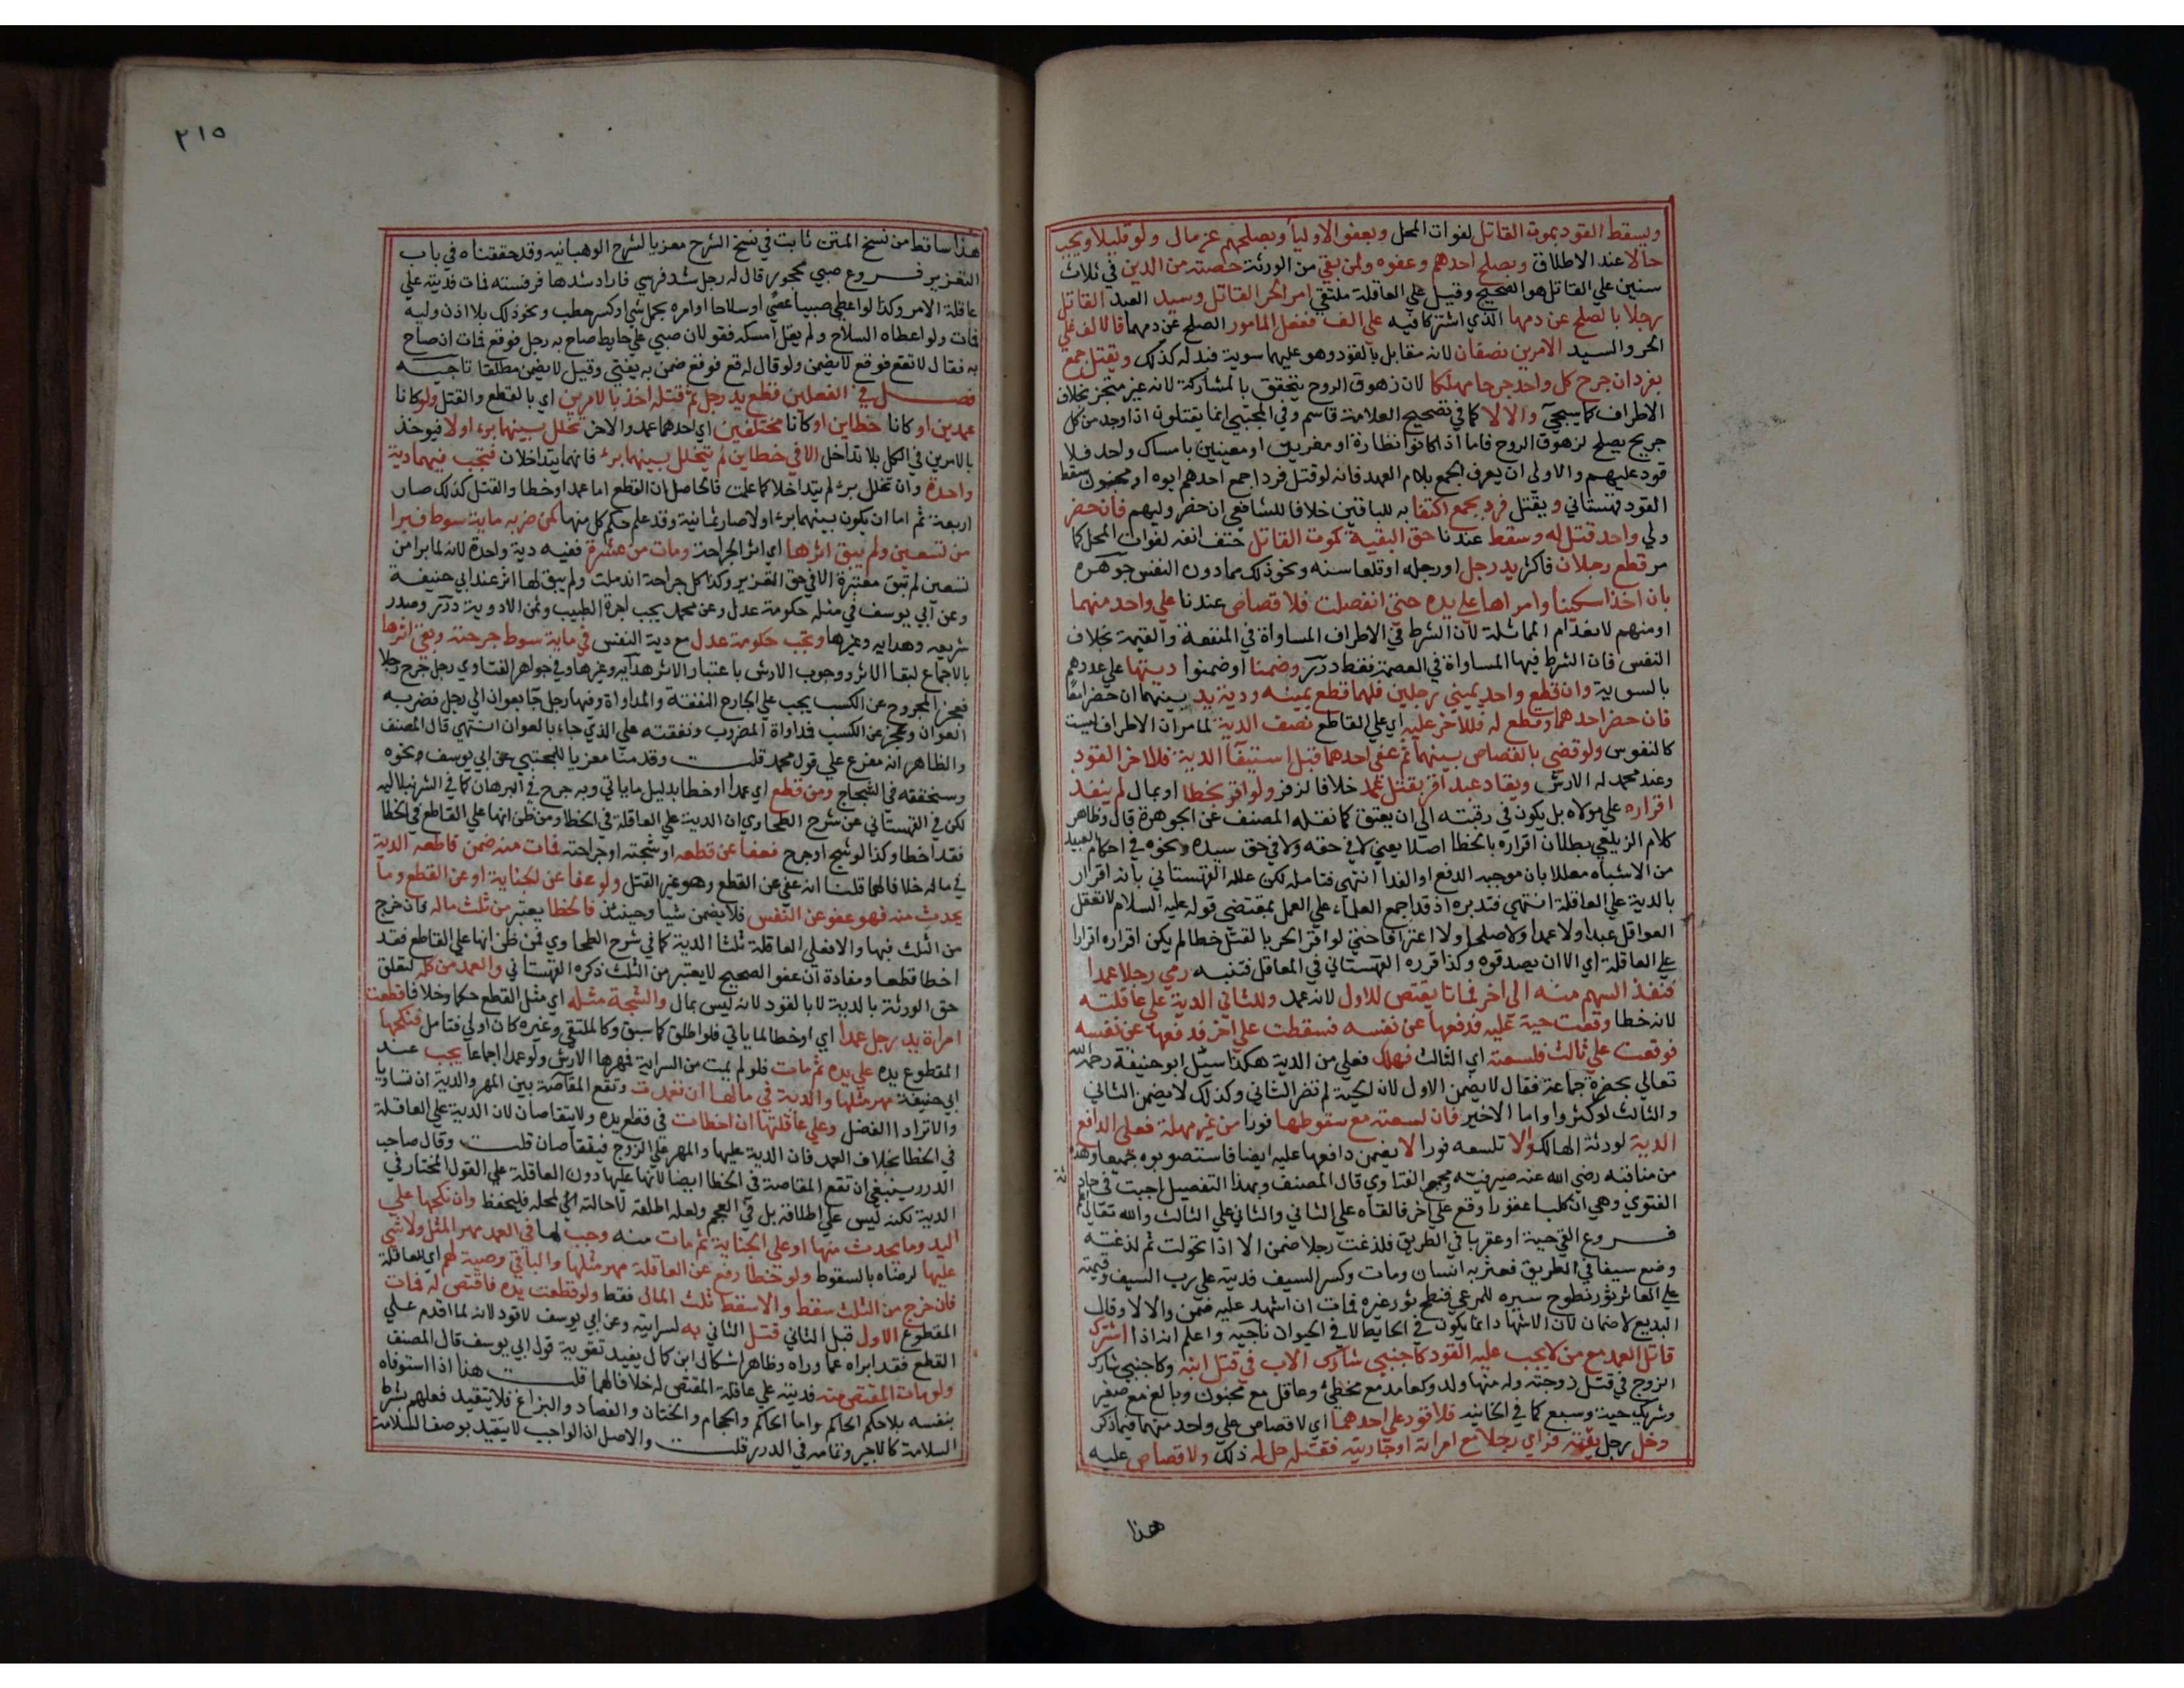 ويسقط القود بموت القاتل لفوات المحل وبعفو الاوليا وبصلحهم عن مال ولو قليلا ويجب
حالا عند الاطلاق وبصلح احدهم وعفوه ولمن بقي من الورثة حصته من الدين في ثلاث
سنين علي القاتل هو الصحيح وقيل علي العاقلة ملتقي امر الحر القاتل وسيد العبد القاتل
رجلا بالصلح عن دمها الذي اشتركا فيه علي الف ففعل المامور الصلح عن دمهما فالالف علي
الحر والسيد الامرين نصفان لانه مقابل بالقود وهو عليهما سوية فبدله كذلك ويقتل جمع
بفرد ان جرح كل واحد جرحا مهلكا لان زهوق الروح يتحقق بالمشاركة لانه غير متجز بخلاف
الاطراف كما سيجي والا لا كما في تصحيح العلامة قاسم وفي المجتبي انما يقتلون اذا وجد من كل
جريح يصلح لزهوق الروح فاما اذا كانوا نظارة او مغريين او معينين بامساك واحد فلا
قود عليهم والاولي ان يعرف الجمع بلام العهد فانه لو قتل فرد اجمع احدهم ابوه او مجنون سقط
القود قهستاني ويقتل فرد بجمع اكتفا به للباقين خلافا للشافعي ان حضر وليهم فان حضر
ولي واحد قتل له وسقط عندنا حق البقية كموت القاتل حتف انفه لفوات المحل كما
مر قطع رجلان فاكثر يد رجل او رجله او قلعا سنه ونحو ذلك مما دون النفس جوهره
بان اخذا سكينا وامراها علي يده حتي انفصلت فلا قصاص عندنا علي واحد منهما
او منهم لانعدام المماثلة لان الشرط في الاطراف المساواة في المنفعة والقيمة بخلاف
النفس فان الشرط فيها المساواة في العصمة فقط درر وضمنا او ضمنوا ديتها علي عددهم
بالسوية وان قطع واحد يميني رجلين فلهما قطع يمينه ودية يد بينهما ان حضرا معا
فان حضر احدهما وقطع له فللاخر عليه اي علي القاطع نصف الدية لما مر ان الاطراف ليست
كالنفوس ولو قضي بالقصاص بينهما ثم عفي احدهما قبل استيفا الدية فللاخر القود
وعند محمد له الارش ويقاد عبد اقر بقتل عمد خلافا لزفر ولو اقر بخطا او بمال لم ينفذ
اقراره علي مولاه بل يكون في رقبته الي ان يعتق كما نقله المصنف عن الجوهرة قال وظاهر
كلام الزيلعي بطلان اقراره بالخطا اصلا يعني لا في حقه ولا في حق سيده ونحوه في احكام العبيد
من الاشباه معللا بان موجبه الدفع او الفدا انتهي فتامله لكن علله القهستاني بانه اقرار
بالدية علي العاقلة انتهي فتدبره اذ قد اجمع العلماء علي العمل بمقتضي قوله عليه السلام لا تعقل
العواقل عبدا ولا عمدا ولا صلحا ولا اعترافا حتي لو اقر الحر بالقتل خطا لم يكن اقراره اقرارا
علي العاقلة اي الا ان يصدقوه وكذا قرره القهستاني في المعاقل فتنبه رمي رجلا عمدا
فنفذ السهم منه الي اخر فماتا يقتص للاول لانه عمد وللثاني الدية علي عاقلته
لانه خطا وقعت حية عليه فدفعها عن نفسه فسقطت علي اخر فدفعها عن نفسه
فوقعت علي ثالث فلسعته اي الثالث فهلك فعلي من الدية هكذا سئل ابو حنيفة رحمه الله
تعالي بحضرة جماعة فقال لا يضمن الاول لان الحية لم تضر الثاني وكذلك لا يضمن الثاني
والثالث لو كثروا واما الاخير فان لسعته مع سقوطها فورا من غير مهلة فعلي الدافع
الدية لورثة الهالك والا تلسعه فورا لا يضمن دافعها عليه ايضا فاستصوبوه جميعا وهذه
من مناقبه رضي الله عنه صيرفيه ومجمع الفتاوي قال المصنف وبهذا التفصيل اجبت في حادثة
الفتوي وهي ان كلبا عقورا وقع علي اخر فالقاه علي الثاني والثاني علي الثالث والله تعالي
فروع القي حية او عقربا في الطريق فلدغت رجلا ضمن الا اذا تحولت ثم لدغته
وضع سيفا في الطريق فعثر به انسان ومات وكسر السيف فديته علي رب السيف وقيمته
علي العاثر ثور نطوح سيره للمرعي فنطح ثور غيره فمات ان اشهد عليه ضمن والا لا وقال
البديع لا ضمان لان الاشهاد انما يكون في الحايط لا في الحيوان ناجيه واعلم انه اذا اشترك
قاتل العمد مع من لا يجب عليه القود كاجنبي شارك الاب في قتل ابنه وكاجنبي شارك
الزوج في قتل زوجته وله منها ولد وكعامد مع مخطئ وعاقل مع مجنون وبالغ مع صغير
وشريك حية وسبع كما في الخانيه فلا قود علي احدهما اي لا قصاص علي واحد منهما فيما ذكر
دخل رجل بيته فراي رجلا مع امراته او جاريته فقتله حل له ذلك ولا قصاص عليه
هذا
٢١٥
هذا ساقط من نسخ المتن ثابت في نسخ الشرح معزيا لشرح الوهبانيه وقد حققناه في باب
التعزير فروع صبي محجور قال له رجل شد فرسي فاراد شدها فرفسته فمات فديته علي
عاقلة الامر وكذا لو اعطي صبيا عصي او سلاحا او امره بحمل شي او كسر حطب ونحو ذلك بلا اذن وليه
فمات ولو اعطاه السلاح ولم يقل امسكه فقولان صبي علي حايط صاح به رجل فوقع فمات ان صاح
به فقال لا تقع فوقع لا يضمن ولو قال له قع فوقع ضمن به يفتي وقيل لا يضمن مطلقا تاجيه
فصل في الفعلين قطع يد رجل ثم قتله اخذ بالامرين اي بالقطع والقتل ولو كانا
عمدين او كانا خطاين او كانا مختلفين اي احدهما عمد والاخر تخلل بينهما برء اولا فيوخذ
بالامرين في الكل بلا تداخل الا في خطاين لم يتخلل بينهما برء فانهما يتداخلان فتجب فيهما دية
واحدة وان تخلل برء لم يتداخلا كما علمت فالحاصل ان القطع اما عمد او خطا والقتل كذلك صار
اربعة ثم اما ان يكون بينهما برء او لا صار ثمانية وقد علم حكم كل منها كمن ضربه ماية سوط فبرا
من تسعين ولم يبق اثرها اي اثر الجراحة ومات من عشرة ففيه دية واحدة لانه لما برا من
تسعين لم تبق معتبرة الا في حق التعزير وكذا كل جراحة اندملت ولم يبق لها اثر عند ابي حنيفة
وعن ابي يوسف في مثله حكومة عدل وعن محمد يجب اجرة الطبيب وثمن الادوية درر وصدر
شريعه وهدايه وغيرها وتجب حكومة عدل مع دية النفس في ماية سوط جرحته وبقي اثرها
بالاجماع لبقا الاثر ووجوب الارش باعتبار الاثر هدايه وغيرها وفي جواهر الفتاوي رجل جرح رجلا
فعجز المجروح عن الكسب يجب علي الجارح النفقة والمداواة وفيها رجل جا بعوان الي رجل فضربه
العوان وعجز عن الكسب فداواة المضروب ونفقته علي الذي جاء بالعوان انتهي قال المصنف
والظاهر انه مفرع علي قول محمد قلت وقدمنا معزيا للمجتبي عن ابي يوسف نحوه
وسنحققه في الشجاج ومن قطع اي عمدا او خطا بدليل ما ياتي وبه صرح في البرهان كما في الشرنبلاليه
لكن في القهستاني عن شرح الطحاوي ان الدية علي العاقلة في الخطا ومن ظن انها علي القاطع في الخطا
فقد اخطا وكذا لو شج او جرح فعفا عن قطعه او شجته او جراحته فمات منه ضمن قاطعه الدية
في ماله خلافا لهما قلنا انه عفي عن القطع وهو غير القتل ولو عفا عن الجناية او عن القطع وما
يحدث منه فهو عفو عن النفس فلا يضمن شيا وحينئذ فالخطا يعتبر من ثلث ماله فان خرج
من الثلث فبها والا فعلي العاقلة ثلثا الدية كما في شرح الطحاوي فمن ظن انها علي القاطع فقد
اخطا قطعا ومفاده ان عفو الصحيح لا يعتبر من الثلث ذكره القهستاني والعمد من كله لتعلق
حق الورثة بالدية لا بالقود لانه ليس بمال والشجة مثله اي مثل القطع حكما وخلافا قطعت
امراة يد رجل عمدا اي او خطا لما ياتي فلو اطلق كما سبق وكالملتقي وغيره كان اولي فتامل فنكحها
المقطوع يده علي يده ثم مات فلو لم يمت من السراية فمهرها الارش ولو عمدا اجماعا يجب عند
ابي حنيفة مهر مثلها والدية في مالها ان تعمدت وتقع المقاصة بين المهر والدية ان تساويا
والا ترادا الفضل وعلي عاقلتها ان اخطات في قطع يده ولا يتقاصان لان الدية علي العاقلة
في الخطا بخلاف العمد فان الدية عليها والمهر علي الزوج فيتقاصان قلت وقال صاحب
الدرر ينبغي ان تقع المقاصة في الخطا ايضا لانها عليها دون العاقلة علي القول المختار في
الدية لكنه ليس علي اطلاقه بل في العجم ولعله اطلقه لاحالته الي محله فليحفظ وان نكحها علي
اليد وما يحدث منها او علي الجناية ثم مات منه وجب لها في العمد مهر المثل ولا شي
عليها لرضاه بالسقوط ولو خطا رفع عن العاقلة مهر مثلها والباقي وصية لهم اي للعاقلة
فان خرج من الثلث سقط والا سقط ثلث المال فقط ولو قطعت يده فاقتص له فمات
المقطوع الاول قبل الثاني قتل الثاني به لسرايته وعن ابي يوسف لا قود لانه لما اقدم علي
القطع فقد ابراه عما وراه وظاهر اشكال ابن كمال يفيد تقوية قول ابي يوسف قال المصنف
ولو مات المقتص منه فديته علي عاقلة المقتص له خلافا لهما قلت هذا اذا استوفاه
بنفسه بلا حكم الحاكم واما الحاكم والحجام والختان والفصاد والبزاغ فلا يتقيد فعلهم بشرط
السلامة كالاجير وتمامه في الدرر قلت والاصل ان الواجب لا يتقيد بوصف السلامة